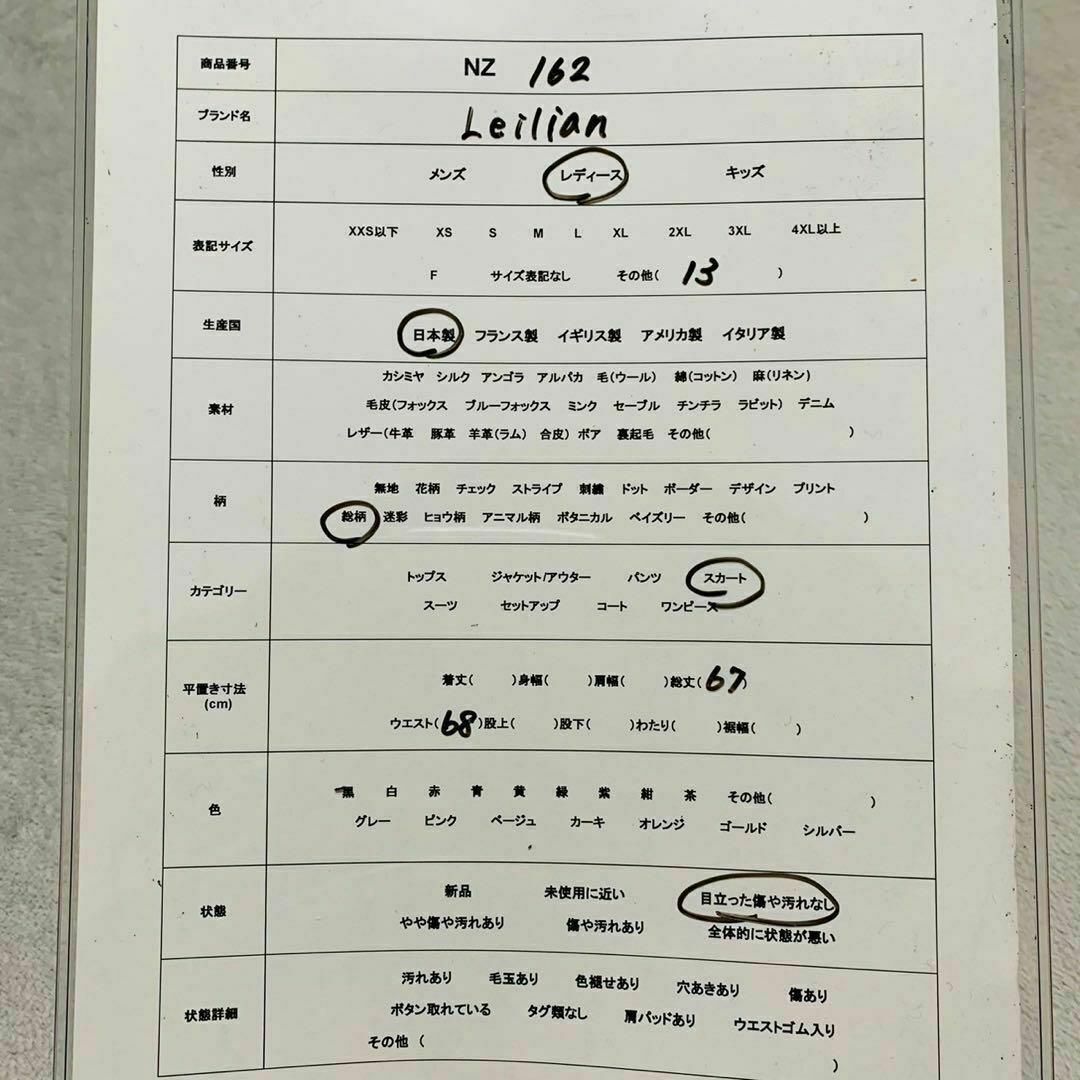 商品番号 NZ 162
ブランド名 Leilian
性別 メンズ レディース キッズ
表記サイズ XXS以下 XS S M L XL 2XL 3XL 4XL以上
F サイズ表記なし その他( 13 )
生産国 日本製 フランス製 イギリス製 アメリカ製 イタリア製
カシミヤ シルク アンゴラ アルパカ 毛(ウール) 綿(コットン) 麻(リネン)
素材 毛皮(フォックス ブルーフォックス ミンク セーブル チンチラ ラビット) デニム
レザー(牛革 豚革 羊革(ラム) 合皮) ボア 裏起毛 その他( )
柄 無地 花柄 チェック ストライプ 刺繍 ドット ボーダー デザイン プリント
総柄 迷彩 ヒョウ柄 アニマル柄 ボタニカル ペイズリー その他( )
カテゴリー トップス ジャケット/アウター パンツ スカート
スーツ セットアップ コート ワンピース
平置き寸法 着丈( )身幅( )肩幅( )総丈( 67 )
(cm) ウエスト( 68 )股上( )股下( )わたり( )裾幅( )
色 黒 白 赤 青 黄 緑 紫 紺 茶 その他( )
グレー ピンク ベージュ カーキ オレンジ ゴールド シルバー
状態 新品 未使用に近い 目立った傷や汚れなし
やや傷や汚れあり 傷や汚れあり 全体的に状態が悪い
状態詳細 汚れあり 毛玉あり 色褪せあり 穴あきあり 傷あり
ボタン取れている タグ類なし 肩パッドあり ウエストゴム入り
その他 ( )